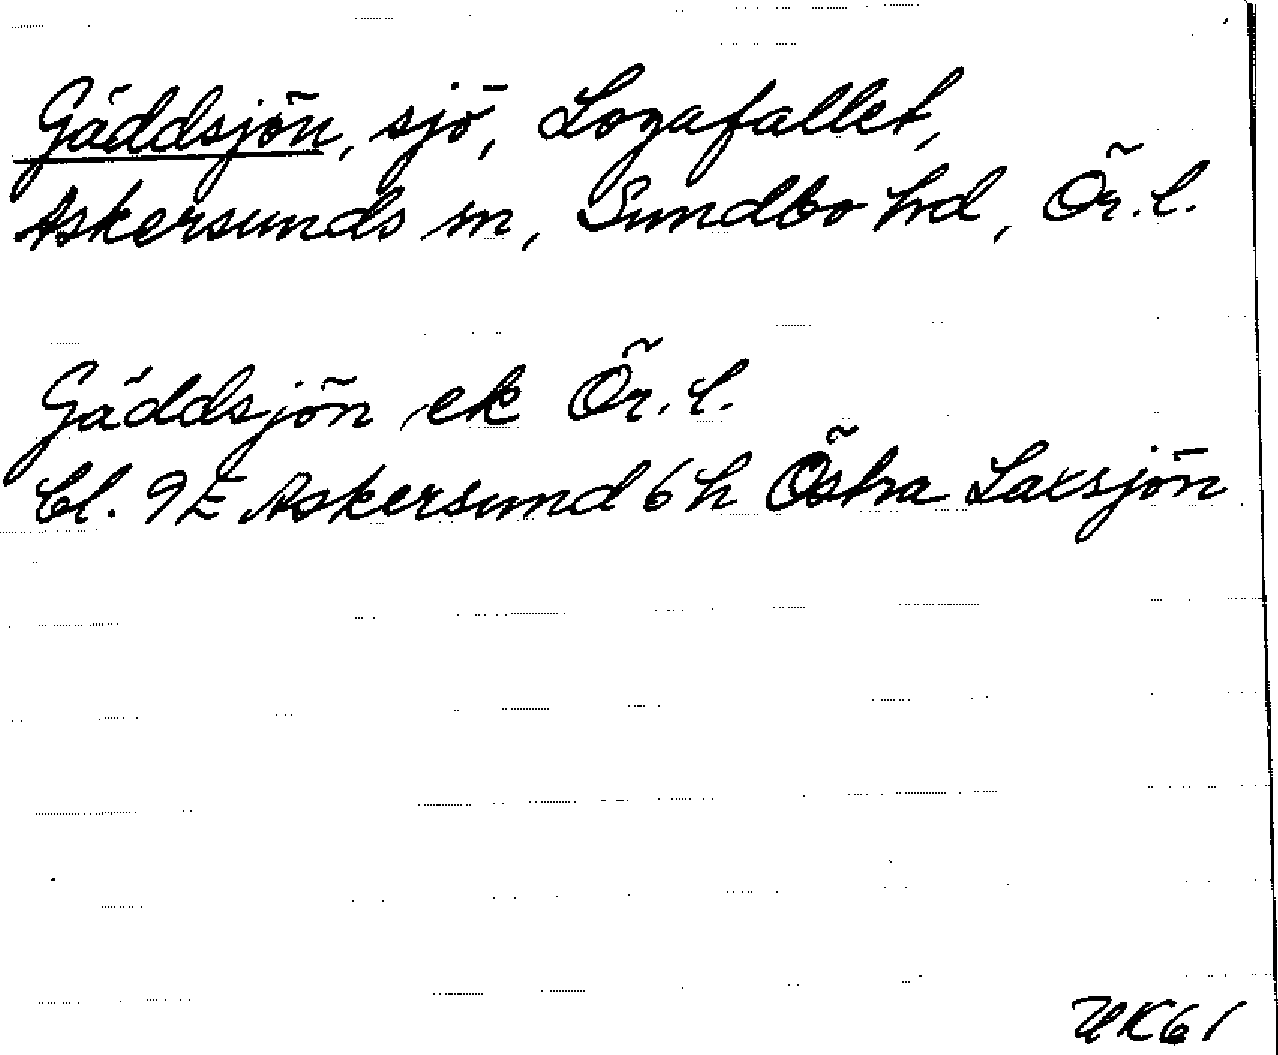 Gäddsjön, sjö, Logafallet,
Askersunds sn, Sundbo hd, Ör. l.
Gäddsjön ek Ör. l.
bl. 9E Askersund 6h Östra Laxsjön
UK61